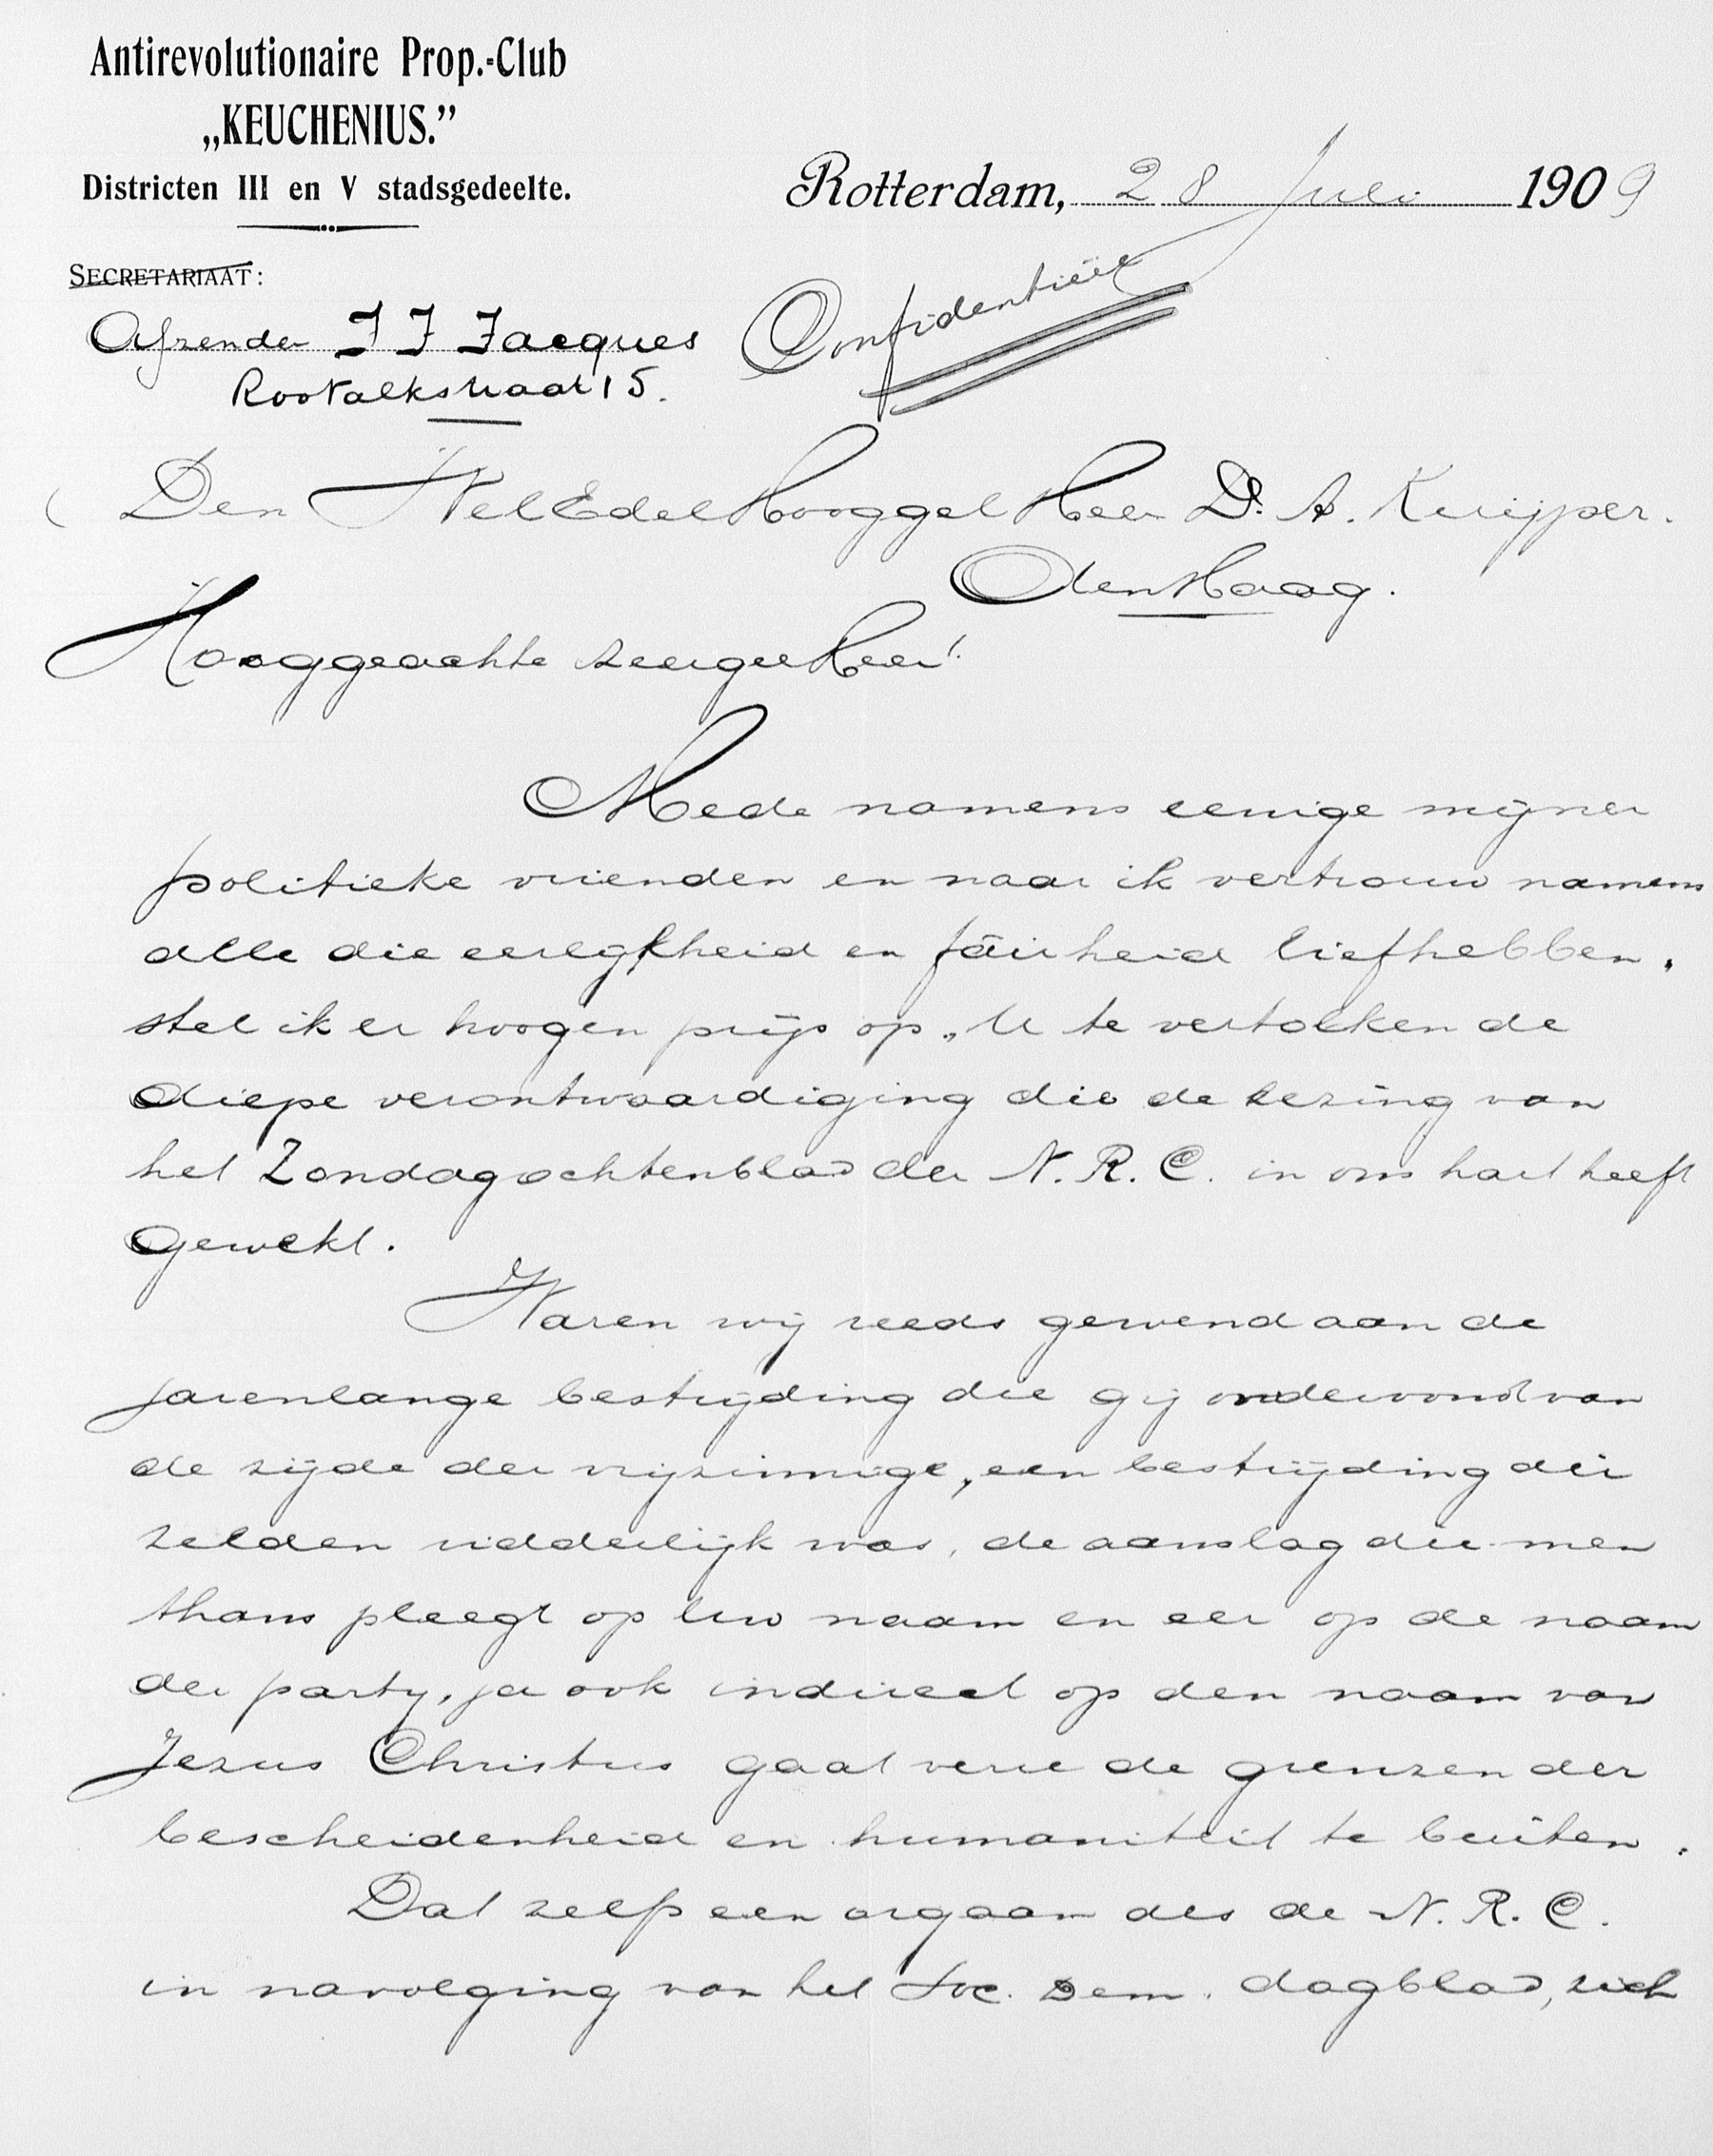 Antirevolutionaire Prop.-Club
„KEUCHENIUS.”
Districten III en V stadsgedeelte.
Rotterdam, 28 Juli 1909
SECRETARIAAT:
Confidentiëel
Afzender J J Jacques
Roo Valkstraat 15.
Den WelEdel Hooggel Heer Dr. A. Kuijper.
Den Haag.
Hooggeachte zeergel Heer!
Mede namens eenige mijner
politieke vrienden en naar ik vertrouw namens
alle die eerlijkheid en fairheid liefhebben,
stel ik er hoogen prijs op, U te vertolken de
diepe verontwaardiging die de lezing van
het Zondagochtenblad der N. R. C. in ons hart heeft
gewekt.
Waren wij reeds gewend aan de
jarenlange bestrijding die gij ondervond van
de zijde der vrijzinnige, een bestrijding die
zelden ridderlijk was, de aanslag die men
thans pleegt op Uw naam en eer op de naam
der party, ja ook indirect op den naam van
Jezus Christus gaat verre de grenzen der
bescheidenheid en humaniteit te buiten.
Dat zelfs een orgaan als de N. R. C.
in navolging van het Soc. Dem. dagblad, zich